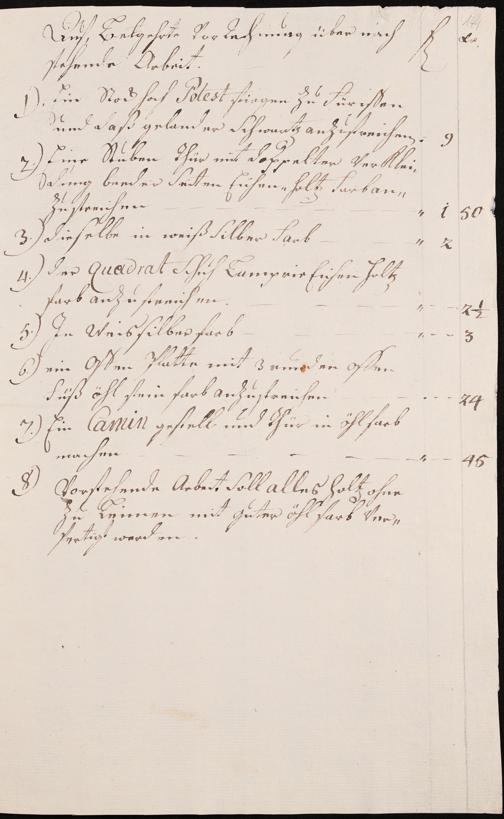 Auf, Belgehrte Vorrechnung über nach
stehende Arbeit.
f x.
1) Ein Stock hoch Potest stiegen zu Fürissen
und das geländer schwartz anzustreichen - 9
2.) Eine Stuben thür mit doppelter Verklei,
dung beeder seiten Eichenholtz farb an„
zustreichen " 1 50
3.) dieselbe in weiß silber farb " 2
4.) der quadrat Schuh Lamprie Eichen holtz
farb anzustreichen. " 2½
5.) In Weissilberfarb " 3
6) ein Offen Platte mit 3 runden offen
Füß öhl stein farb anzustreichen 24
7.) Ein Camin gestell und thür in öhlfarb
machen " 45
8) Vorstehende Arbeit soll alles holtz ohne
zu Leimen mit guter öhl farb ver„
fertigt werden.